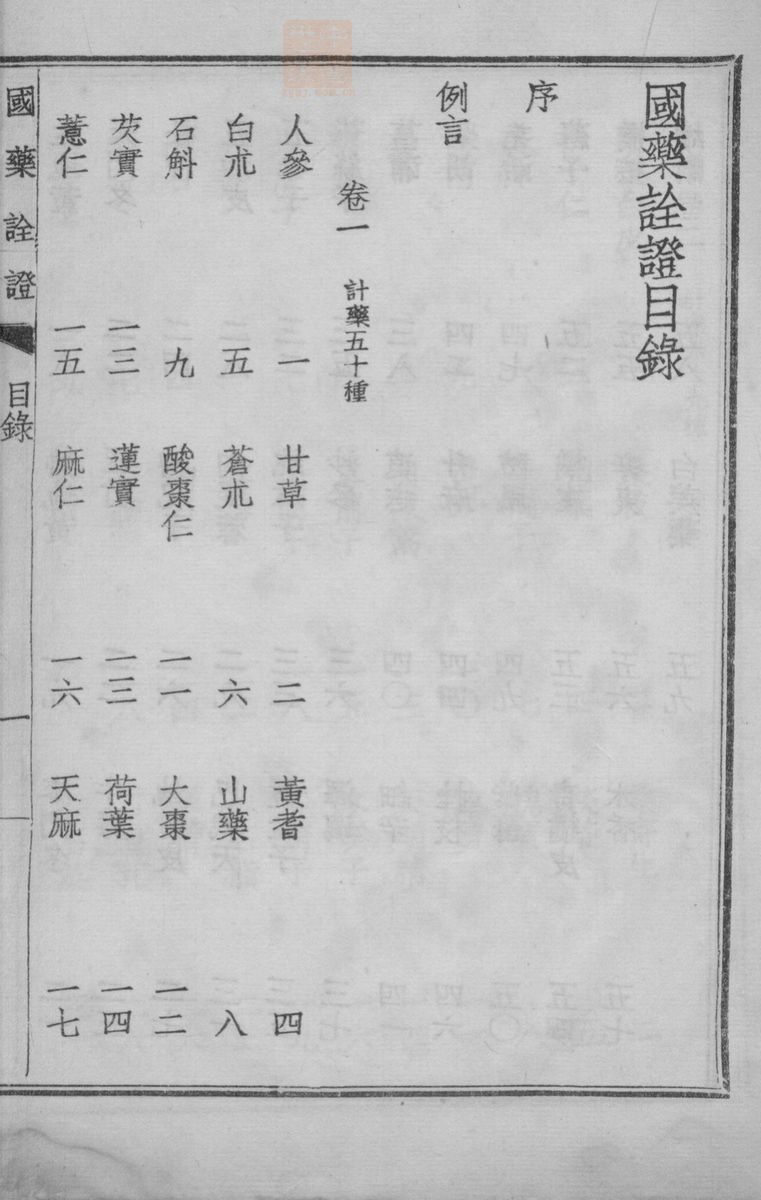 國藥詮證目錄
序
例言
卷一 計藥五十種
人參 一 甘草 二 黃耆 四
白朮 五 蒼朮 六 山藥 八
石斛 九 酸棗仁 一一 大棗 一二
芡實 一三 蓮實 一三 荷葉 一四
薏仁 一五 麻仁 一六 天麻 一七
國藥詮證 目錄 一